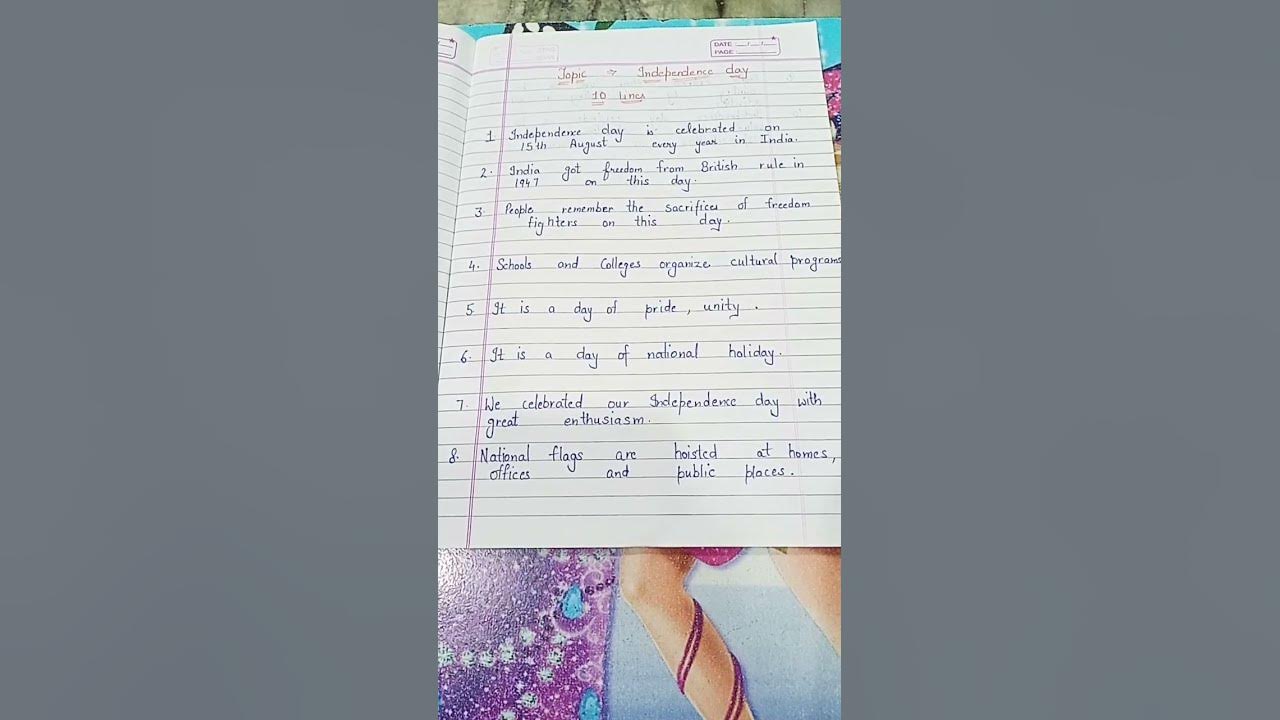 DATE: __/__/__
PAGE: ______
Topic → Independence day
10 lines
1 Independence day is celebrated on
15th August every year in India.
2. India got freedom from British rule in
1947 on this day.
3. People remember the sacrifices of freedom
fighters on this day.
4. Schools and Colleges organize cultural programs
5 It is a day of pride, unity.
6. It is a day of national holiday.
7. We celebrated our Independence day with
great enthusiasm.
8. National flags are hoisted at homes,
offices and public places.